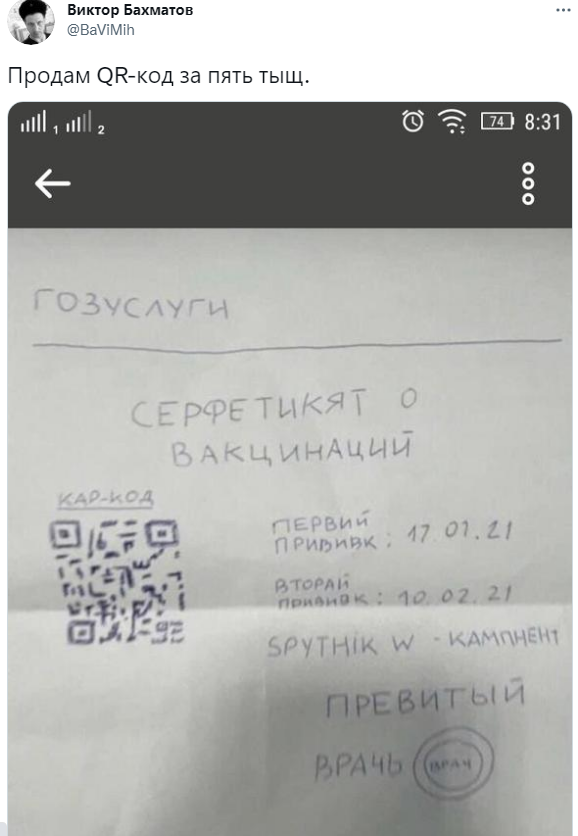 Виктор Бахматов
@BaViMih
Продам QR-код за пять тыщ.
1 2 74 8:31
ГОЗУСЛУГИ
СЕРФЕТИКЯТ О
ВАКЦИНАЦИЙ
КАР-КОД
ПЕРВИЙ
ПРИВИВК : 17.01.21
ВТОРАЙ
ПРИВИВК : 10.02.21
SPYTHIK W - КАМПНЕНТ
ПРЕВИТЫЙ
ВРАЧЬ ВРАЧ